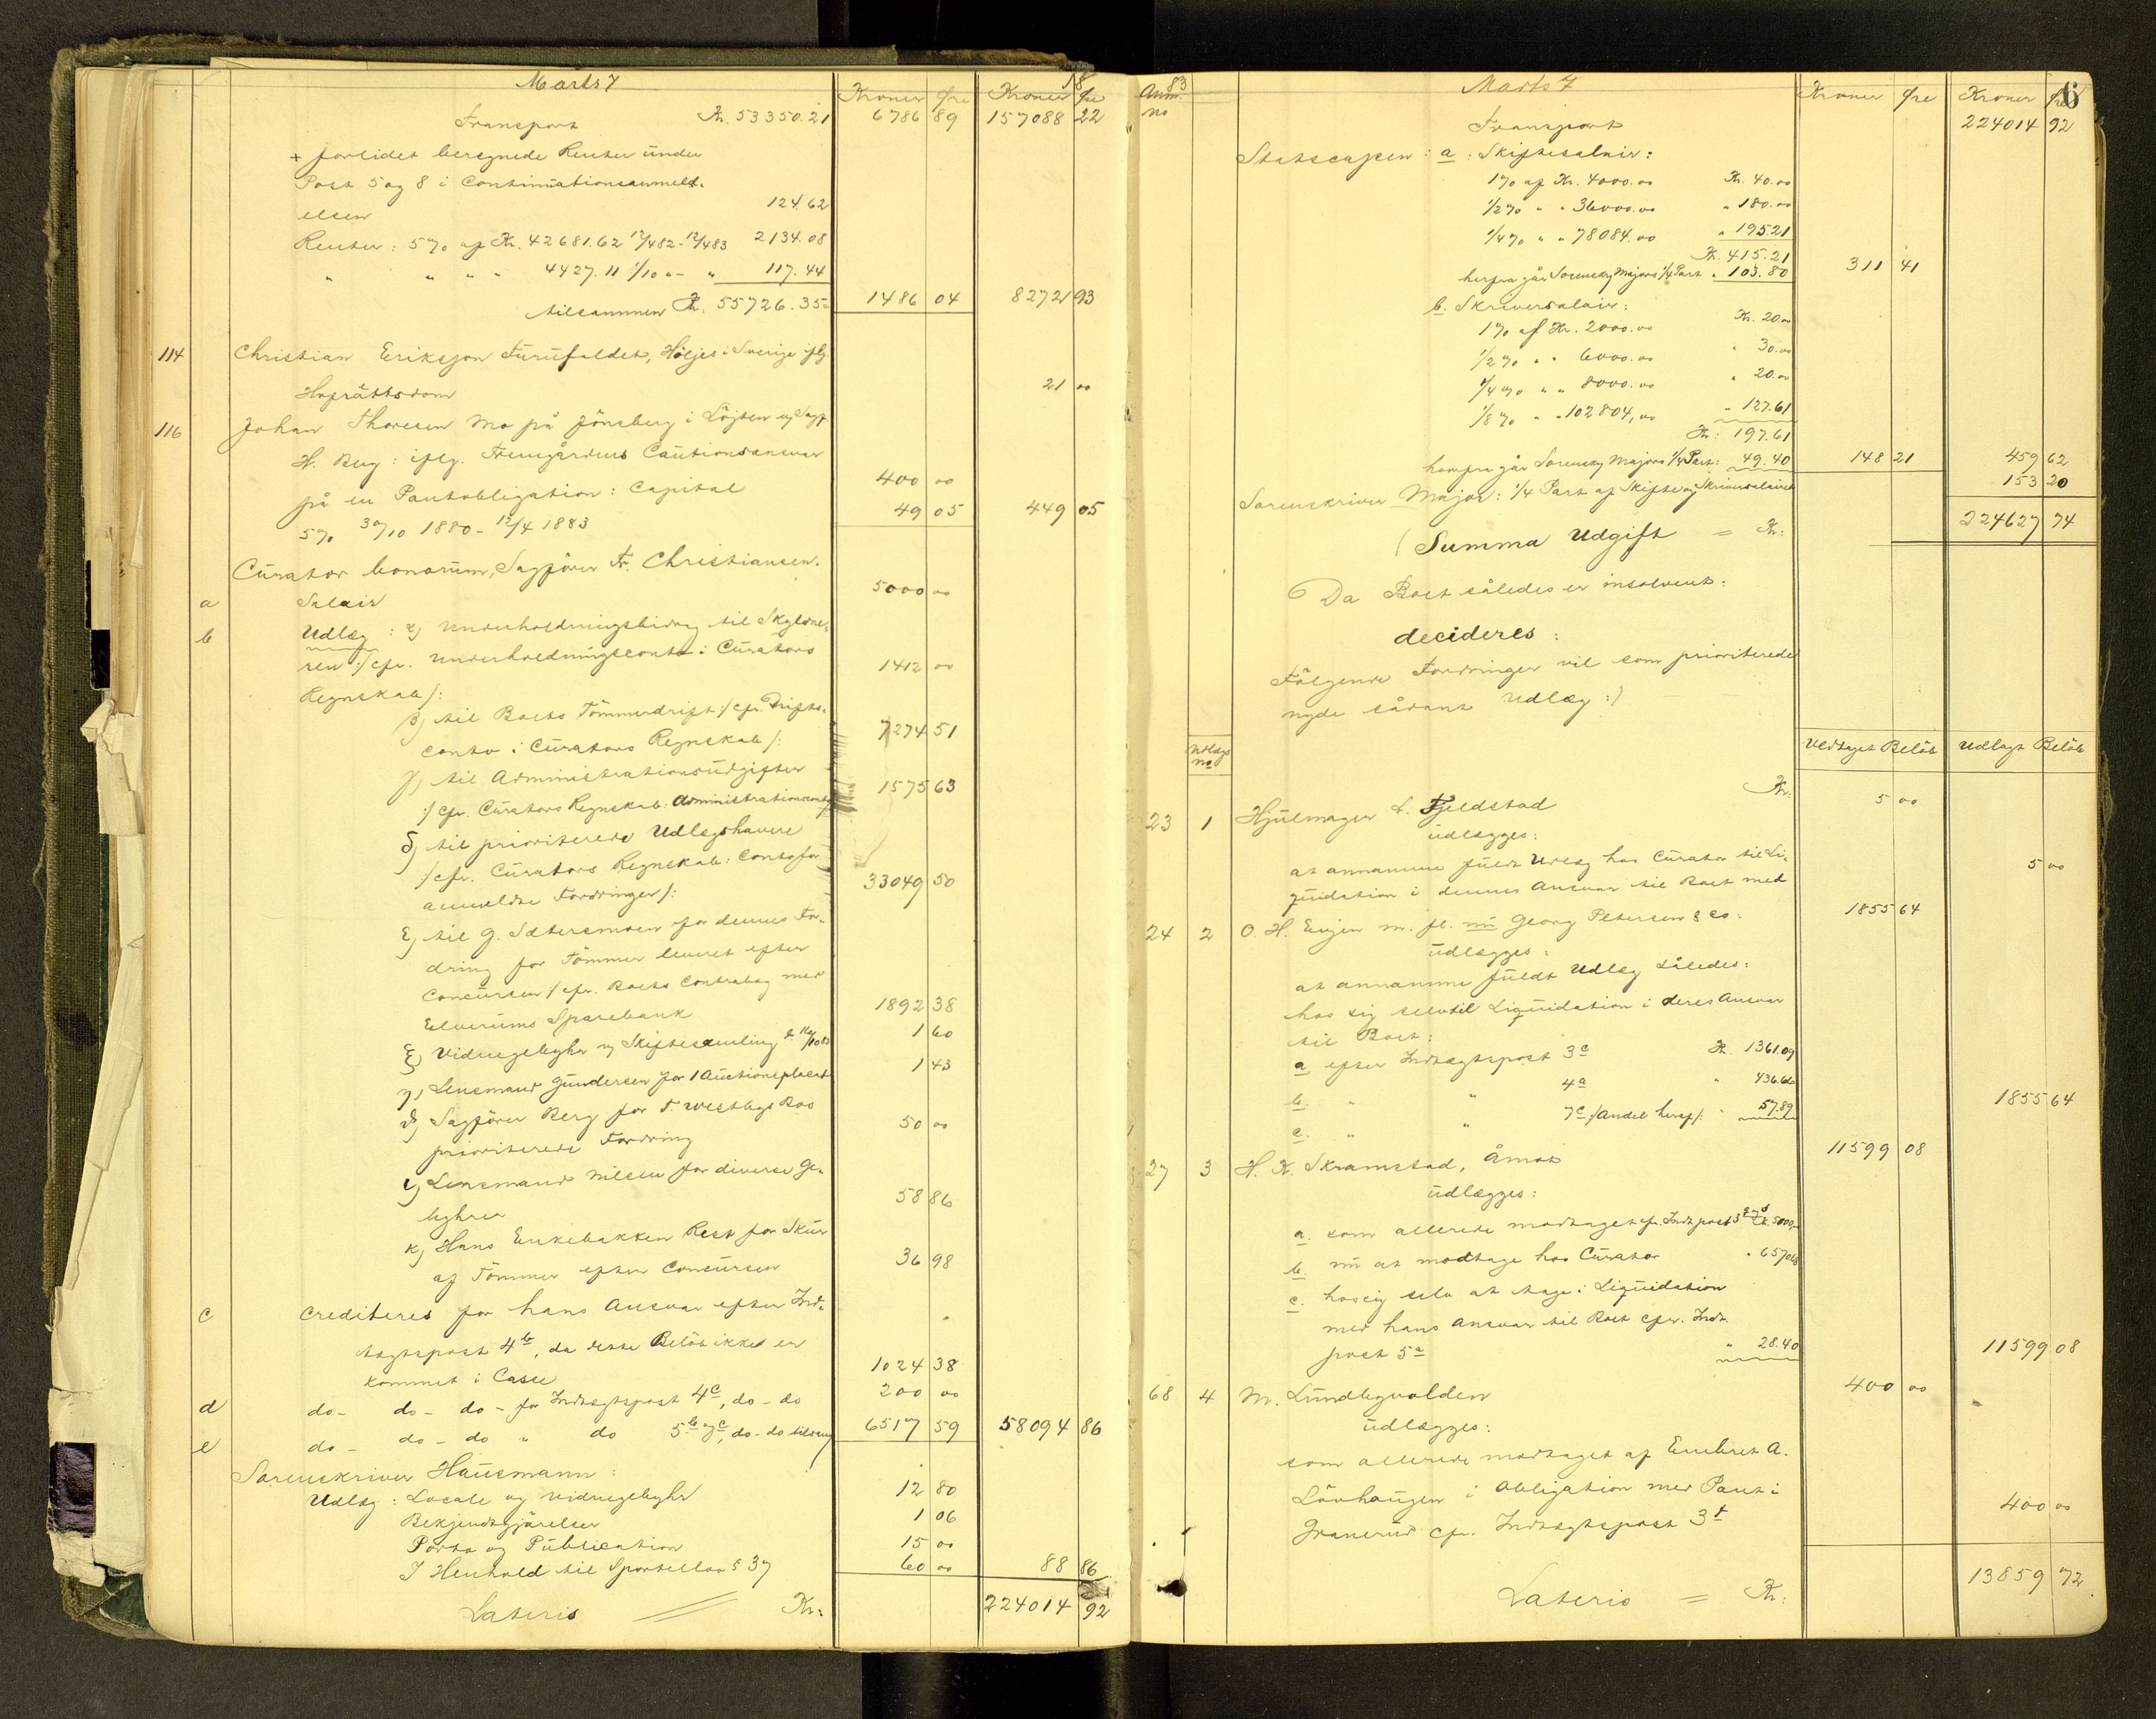 Marts 7 18
Kroner Øre Kroner Øre
Transport Kr. 53350.21 6786 89 157088 22
+ forlidet beregnede Renter under
Post 5 og 8 i Continuationsanmeld-
elsen 124.62
Renter: 5% af Kr. 42681.62 12/4 82 - 12/4 83 2134.08
" " " " 4427.11 1/10 " - " 117.44
tilsammen Kr. 55726.35 1486 04 8272 93
114 Christian Eriksson Furufaldet, Höljes i Sverige iflg.
Hofrättsdom 21 00
116 Johan Thoresen Mo på Jönsberg i Löjten og Sagf.
H. Berg: iflg. Fremgårdens Cautionsansvar
på en Pantobligation: Capital 400 00
5% 30/10 1880 - 12/4 1883 49 05 449 05
Curator bonorum, Sagfører Fr. Christiansen.
a Salair 5000 00
b Udlæg: α) Underholdningsbidrag til Skyldne-
ren :/ cfr. Underholdningsconto i Curators
Regnskab /: 1412 00
β) til Boets Tömmerdrift :/ cfr. Drifts-
conto i Curators Regnskab /: 7274 51
γ) til Administrationsudgifter
:/ cfr. Curators Regnskab: Administrationsconto 1575 63
δ) til prioriterede Udlægshavere
/ cfr. Curators Regnskab: Conto for
anmeldte Fordringer /: 33049 50
ε) til G. Sætersmoen for dennes For-
dring for Tömmer leveret efter
Concursen / cfr. Boets Contrabog med
Elverums Sparebank 1892 38
ξ) Vidnegebyhr og Skiftesamling 1 60
η) Lensmand Gundersen for 1 Auctionsplacat 1 43
ϑ) Sagfører Berg for T. Westbys Bos
prioriterede Fordring 50 00
ι) Lensmand Nilsen for diverse Ge-
byhrer 58 86
κ) Hans Enkebakken Rest for Skur
af Tömmer efter Concursen 36 98
c Crediteres for hans Ansvar efter Ind-
tægtspost 4b, da dette Belöb ikke er
kommet i Casse 1024 38
d do - do - do - for Indtægtspost 4c, do - do 200 00
e do - do - do " do 5b og c, do - do tilsam 6517 59 58094 86
Sorenskriver Hausmann:
Udlæg: Locale og Vidnegebyhr 12 80
Bekjendtgjörelser 1 06
Porto og Publication 15 00
I Henhold til Sportellov § 37 60 00 88 86
Lateris Kr: 224014 92
83 Marts 7 6
Anm. No Kroner Øre Kroner Øre
Transport 224014 92
Statscassen: a: Skiftesalair:
1% af Kr. 4000.00 Kr. 40.00
1/2% " " 36000.00 " 180.00
1/4% " " 78084.00 " 195.21
Kr. 415.21
herfra går Sorenskr. Majors 1/4 Part " 103.80 311 41
b. Skriversalair:
1% af Kr. 2000.00 Kr. 20.00
1/2% " " 6000.00 " 30.00
1/4% " " 8000.00 " 20.00
1/8% " " 102804,00 " 127.61
Kr: 197.61
herfra går Sorenskr. Majors 1/4 Part: 49.40 148 21 459 62
Sorenskriver Major: 1/4 Part af Skifte og Skriversalairet 153 20
Summa Udgift = Kr: 224627 74
Da Boet således er insolvent:
decideres:
Fölgende Fordringer vil som prioriterede
nyde sådant Udlæg :/
Udlægs No Vedtaget Belöb Udlagt Belöb
23 1 Hjulmager A. Fjeldstad Kr: 5 00
udlægges:
at annamme fuldt Udlæg hos Curator til Li-
quidation i dennes Ansvar til Boet med 5 00
24 2 O. H. Engen m. fl. nu Georg Petersen & Co: 1855 64
udlægges:
at annamme fuldt Udlæg således:
hos sig selv til Liquidation i deres Ansvar
til Boet:
a efter Indtægtspost 3c Kr. 1361.09
b. " " 4a " 436.66
c. " " 7c :/ Andel heraf /: " 57.89 1855 64
27 3 H. K. Skramstad, Åmot 11599 08
udlægges:
a. som allerede modtaget cfr. Indt. post 3 Kr. 5000.00
b. nu at modtage hos Curator " 6570.68
c. hos sig selv at tage i Liquidation
med hans Ansvar til Boet cfr. Indt.
post 5a " 28.40 11599 08
68 4 M. Lundbyvolden 400 00
udlægges:
som allerede modtaget af Embret A.
Lövhaugen i Obligation med Pant i
Granerud cfr. Indtægtspost 3t 400 00
Lateris = Kr: 13859 72